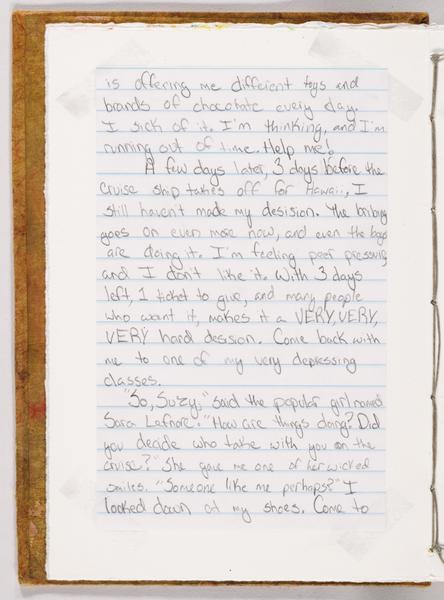 is offering me different toys and
brands of chocolate every day.
I sick of it. I'm thinking, and I'm
running out of time. Help me!
A few days later, 3 days before the
cruise ship takes off for Hawaii, I
still haven't made my desision. The bribing
goes on even more now, and even the boys
are doing it. I'm feeling peer pressure
and I don't like it. With 3 days
left, 1 ticket to give, and many people
who want it, makes it a VERY, VERY,
VERY hard desision. Come back with
me to one of my very depressing
classes.
"So, Suzy," said the popular girl named
Sara . "How are things doing? Did
you decide who to take with you on the
cruise?" She gave me one of her wicked
smiles. "Someone like me perhaps?" I
looked down at my shoes. Come to